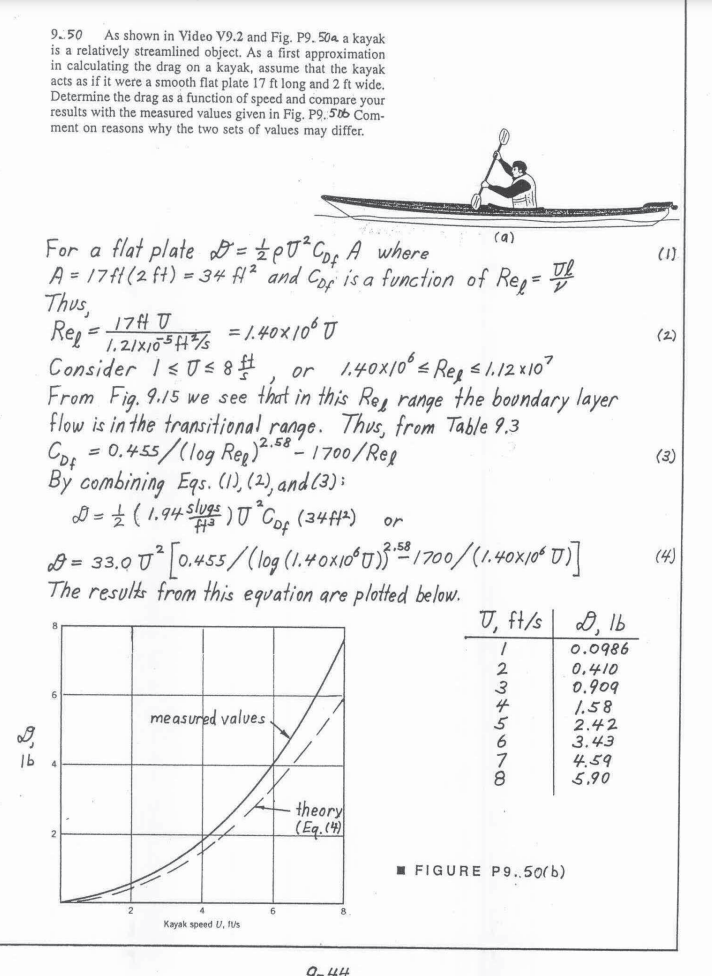 9..50 As shown in Video V9.2 and Fig. P9.50a a kayak
is a relatively streamlined object. As a first approximation
in calculating the drag on a kayak, assume that the kayak
acts as if it were a smooth flat plate 17 ft long and 2 ft wide.
Determine the drag as a function of speed and compare your
results with the measured values given in Fig. P9.50b Com-
ment on reasons why the two sets of values may differ.
(a)
For a flat plate 𝒟 = ½ρU²C_Df A where (1)
A = 17ft(2 ft) = 34 ft² and C_Df is a function of Re_ℓ = Uℓ/ν
Thus,
Re_ℓ = 17ft U / 1.21×10⁻⁵ ft²/s = 1.40×10⁶ U (2)
Consider 1 ≤ U ≤ 8 ft/s, or 1.40×10⁶ ≤ Re_ℓ ≤ 1.12×10⁷
From Fig. 9.15 we see that in this Re_ℓ range the boundary layer
flow is in the transitional range. Thus, from Table 9.3
C_Df = 0.455/(log Re_ℓ)^2.58 - 1700/Re_ℓ (3)
By combining Eqs. (1), (2), and (3):
𝒟 = ½ (1.94 slugs/ft³) U² C_Df (34ft²) or
𝒟 = 33.0 U² [0.455/(log (1.40×10⁶ U))^2.58 - 1700/(1.40×10⁶ U)] (4)
The results from this equation are plotted below.
U, ft/s 𝒟, lb
1 0.0986
2 0.410
3 0.909
4 1.58
5 2.42
6 3.43
7 4.59
8 5.90
8
6
measured values
𝒟,
lb
4
theory
(Eq. (4))
2
2 4 6 8
Kayak speed U, ft/s
■ FIGURE P9..50(b)
9-44